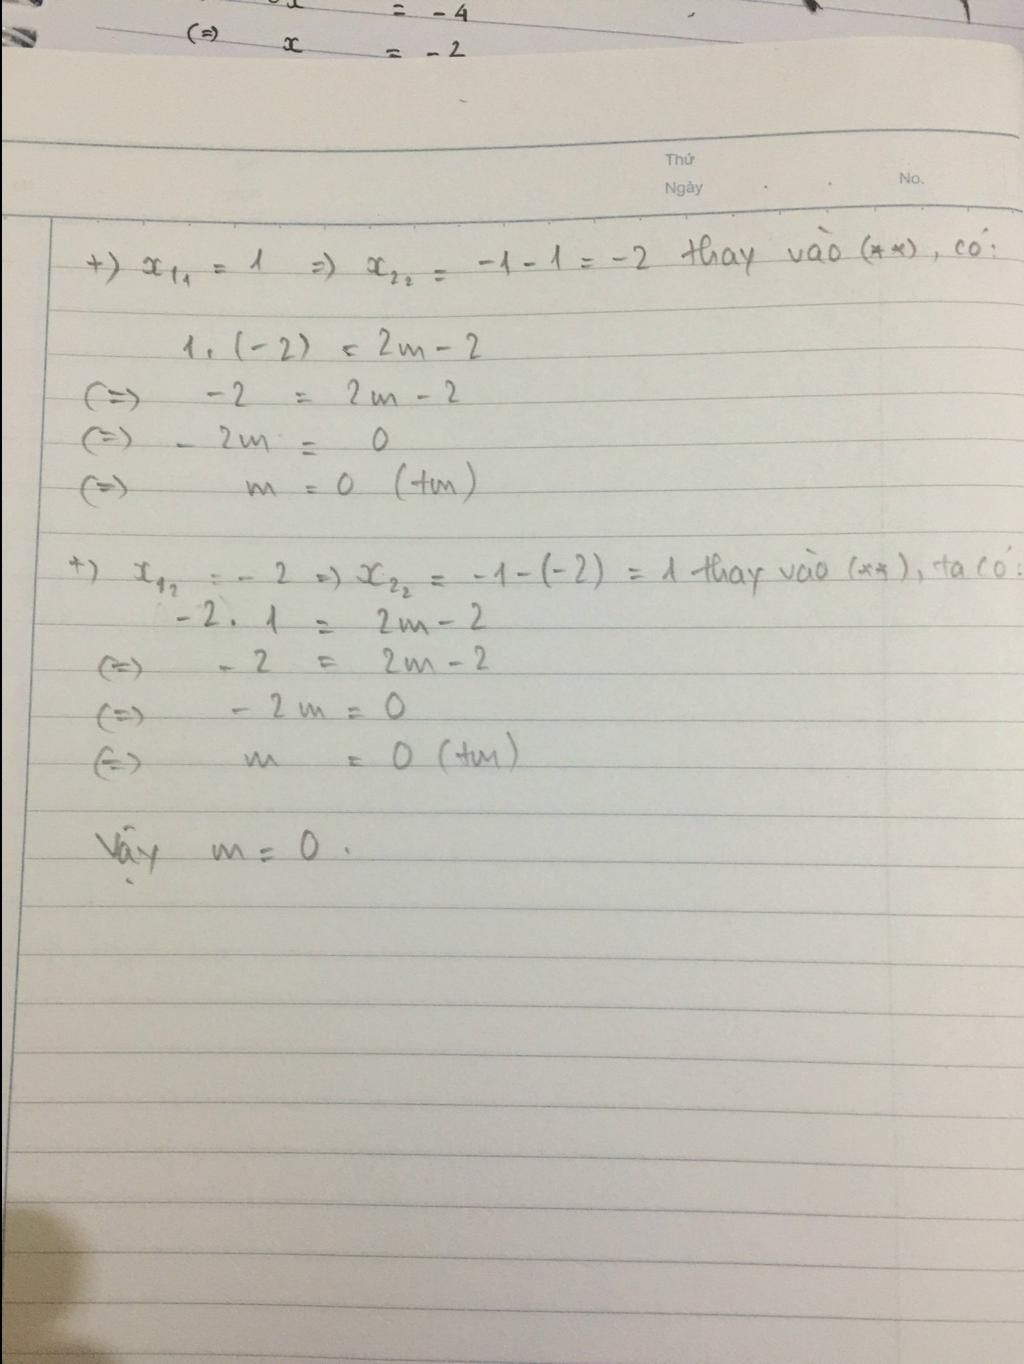 = -4
(=) x = -2
Thứ
Ngày
No.
+) x₁₁ = 1 =) x₂₂ = -1 - 1 = -2 thay vào (**), có:
1. (-2) = 2m - 2
(=) -2 = 2m - 2
(=) - 2m = 0
(=) m = 0 (tm)
+) x₁₂ = - 2 =) x₂₂ = -1 - (-2) = 1 thay vào (**), ta có:
-2. 1 = 2m - 2
(=) - 2 = 2m - 2
(=) - 2m = 0
(=) m = 0 (tm)
Vậy m = 0.